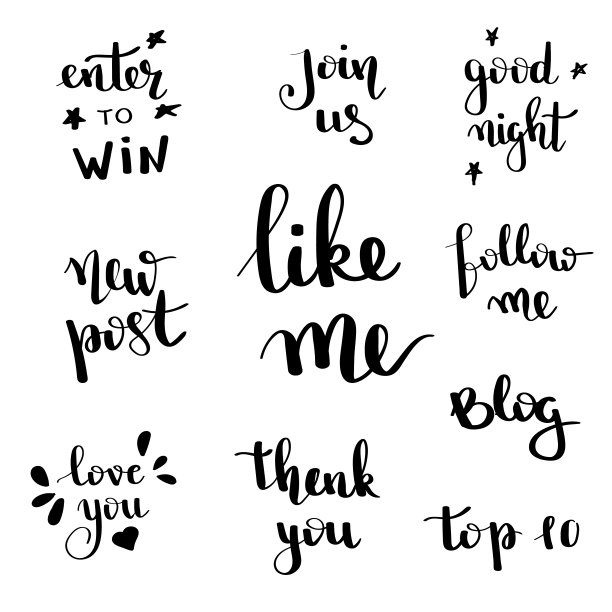 enter
TO
WIN
Join
us
good
night
like
me
new
post
follow
me
Blog
love
you
thenk
you
top 10